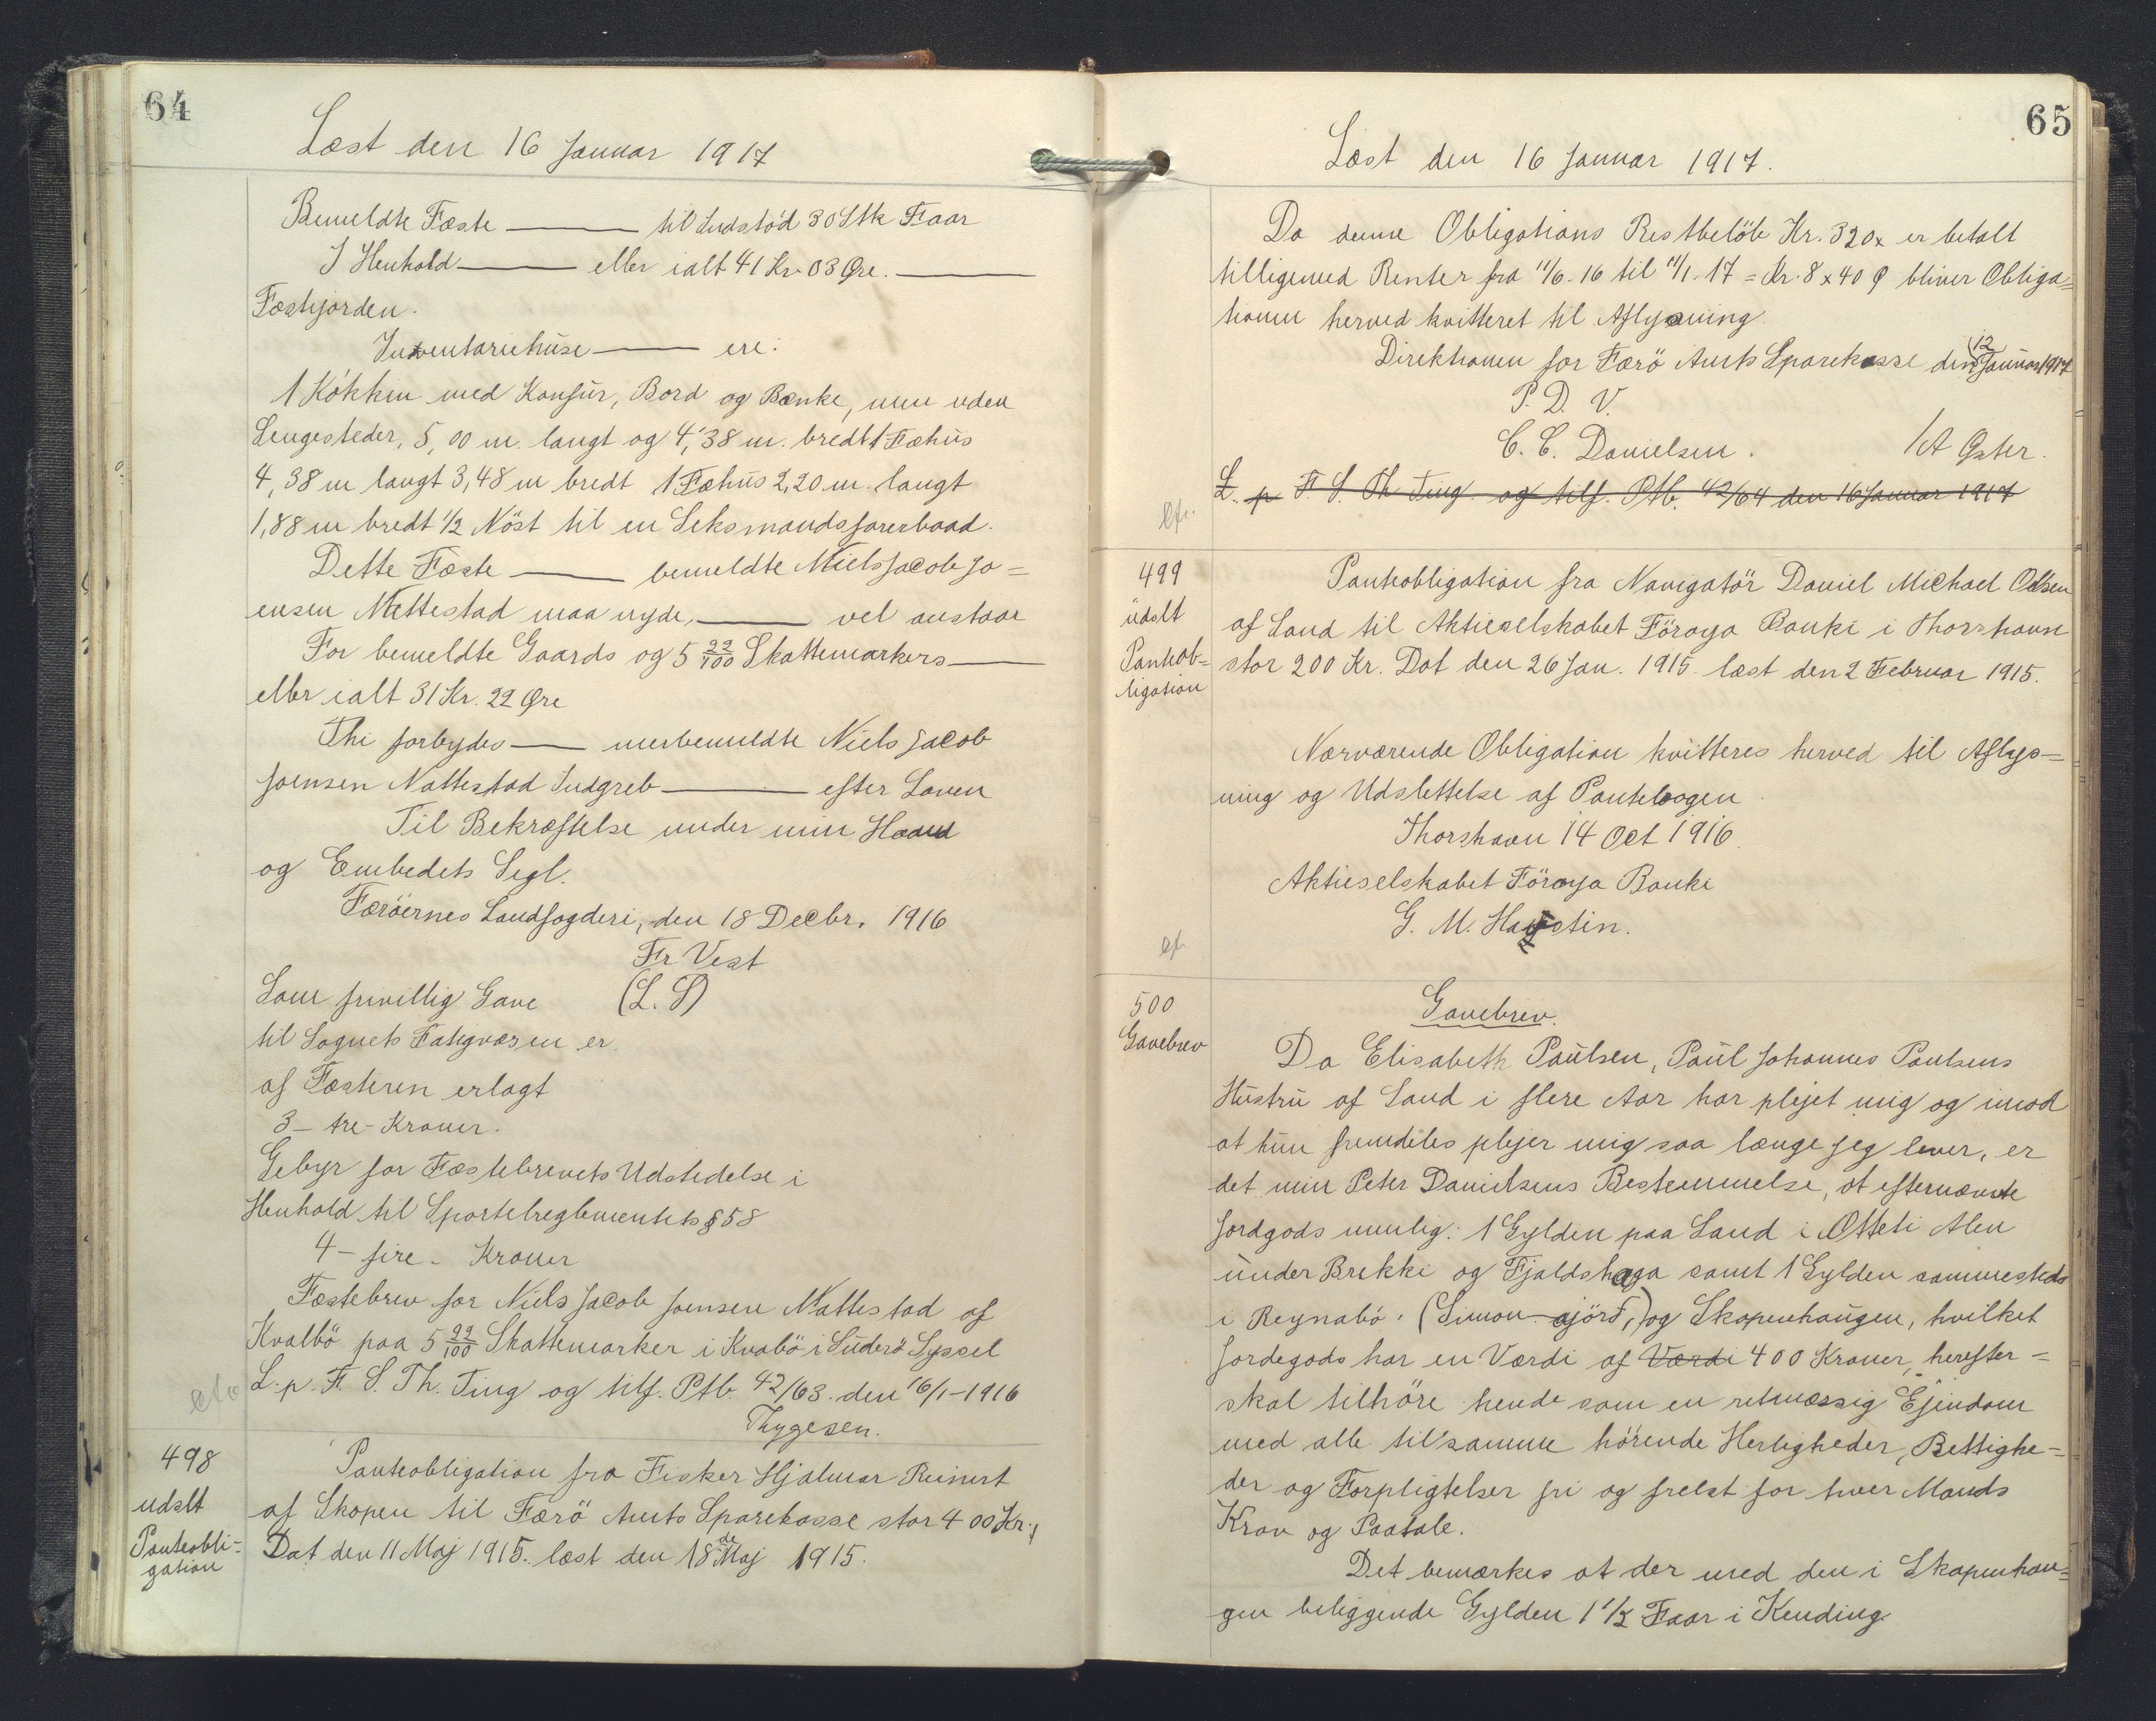 64
Læst den 16 Januar 1917
Bemeldte Fæste ——— til Indstöd 30 Stk Faar
I Henhold ——— eller ialt 41 Kr. 03 Øre. ———
Fæstejorden.
Inventariehuse ——— ere:
1 Kökken med Konfur, Bord og Bænke, men uden
Sengesteder, 5,00 m. langt og 4,38 m. bredt 1 Fæhus
4,38 m langt 3,48 m bredt 1 Fæhus 2,20 m. langt
1,88 m bredt 1/2 Nöst til en Seksmandsfarerbaad.
Dette Fæste ——— bemeldte Niels Jacob Jo=
ensen Nattestad maa nyde, ——— vel anstaar
For bemeldte Gaards og 5 22/100 Skattemarkers ———
eller ialt 31 Kr. 22 Øre
Thi forbydes ——— merbemeldte Niels Jacob
Joensen Nattestad Indgreb ——— efter Loven
Til Bekræftelse under min Haand
og Embedets Segl.
Færöernes Landfogderi, den 18 Decbr. 1916
Fr Vest
Som frivillig Gave (L. S)
til Sognets Fattigvæsen er
af Fæsteren erlagt
3 – tre – Kroner.
Gebyr for Fæstebrevets Udstedelse i
Henhold til Sportelreglementets § 58
4 – fire – Kroner
Fæstebrev for Niels Jacob Joensen Nattestad af
Kvalbö paa 5 22/100 Skattemarker i Kvalbö i Suderö Syssel
L. p. F. S. Th. Ting og tilf. Ptb. 42/63. den 16/1-1916
Thygesen.
498
udslt
Panteobli-
gation
Panteobligation fra Fisker Hjalmar Reinert
af Skopen til Færö Amts Sparekasse stor 400 Kr.
Dat den 11 Maj 1915. læst den 18de Maj 1915.
65
Læst den 16 Januar 1917.
Da denne Obligations Restbelöb Kr. 320x er betalt
tilligemed Renter fra 11/6-16 til 11/1-17 = Kr. 8 x 40 Ø bliver Obliga=
tionen herved kvitteret til Aflysning
Direktionen for Færö Amts Sparekasse den 12 Januar 1917
P. D. V.
C. C. Danielsen. / A Øster.
L. p F. S. Th Ting og tilf. Ptb. 42/64 den 16 Januar 1917
499
udslt
Panteob=
ligation
Panteobligation fra Navigatör Daniel Michael Olsen
af Sand til Aktieselskabet Föroya Banki i Thorshavn
stor 200 Kr. Dat den 26 Jan. 1915 læst den 2 Februar 1915.
Nærværende Obligation kvitteres herved til Aflys=
ning og Udslettelse af Pantebogen.
Thorshavn 14 Oct 1916.
Aktieselskabet Föroya Banki
G. M. Haystin.
500
Gavebrev
Gavebrev.
Da Elisabeth Paulsen, Paul Johannes Poulsens
Hustru af Sand i flere Aar har plejet mig og imod
at hun fremdeles plejer mig saa længe jeg lever, er
det min Peter Danielsens Bestemmelse, at efternævnte
Jordgods nemlig: 1 Gylden paa Sand i Otteti Alen
under Brekki og Fjaldshaga samt 1 Gylden sammesteds
i Reynabö. (Simon-ajörd,) og Skopenhaugen, hvilket
Jordegods har en Værdi af Værdi 400 Kroner, herefter =
skal tilhöre hende som en retmæssig Ejendom
med alle tilsamme hörende Herligheder, Rettighe=
der og Forpligtelser fri og frelst for hver Mands
Krav og Paatale.
Det bemærkes at der med den i Skopenhau=
gen beliggende Gylden 1 1/2 Faar i Kending